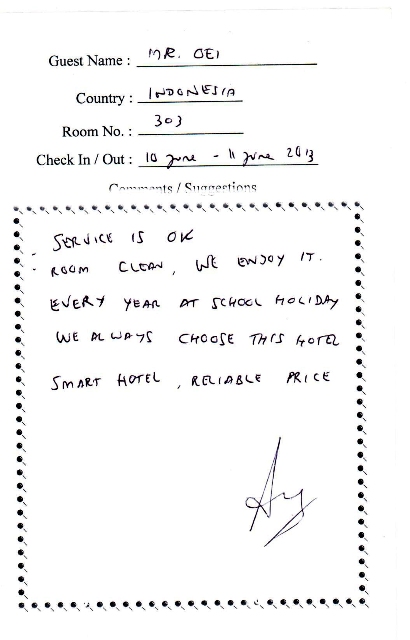 Guest Name : MR. OEI
Country : INDONESIA
Room No. : 303
Check In / Out : 10 June - 11 June 2013
Comments / Suggestions
- SERVICE IS OK
- ROOM CLEAN, WE ENJOY IT.
EVERY YEAR AT SCHOOL HOLIDAY
WE ALWAYS CHOOSE THIS HOTEL
SMART HOTEL, RELIABLE PRICE